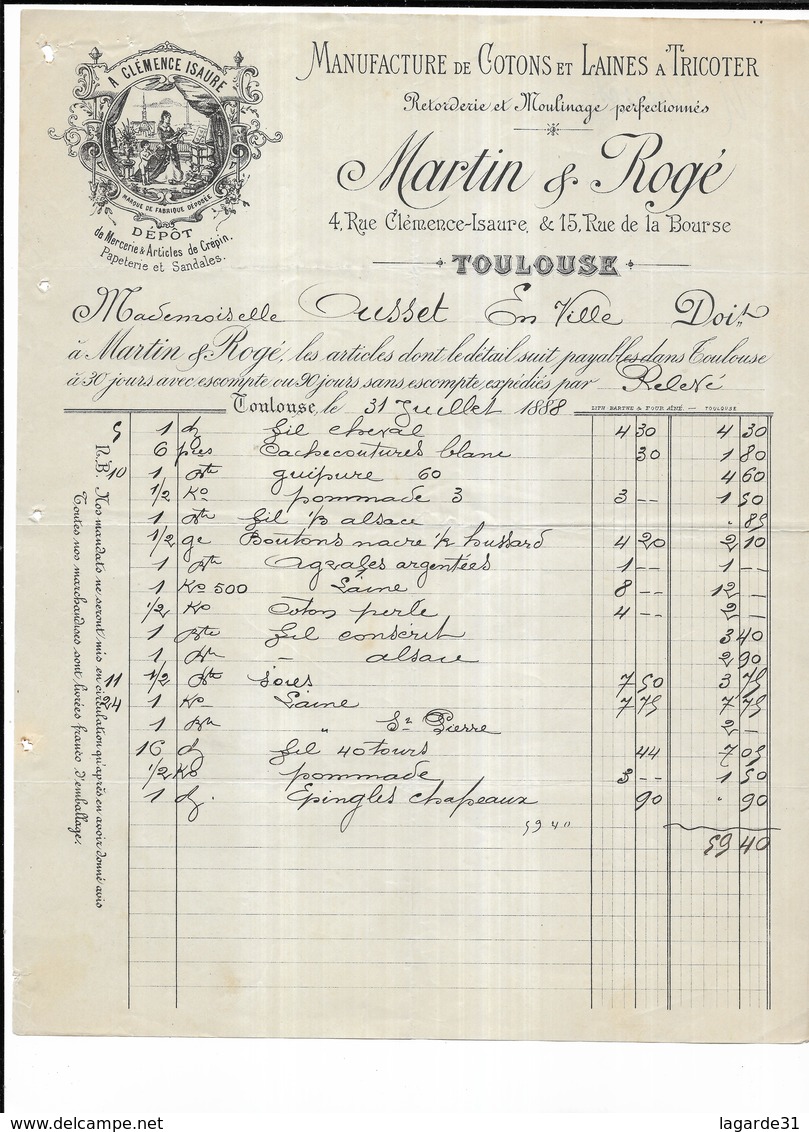 A CLÉMENCE ISAURE
MARQUE DE FABRIQUE DÉPOSÉE
DÉPÔT
de Mercerie & Articles de Crépin.
Papeterie et Sandales.
MANUFACTURE DE COTONS ET LAINES A TRICOTER
Retorderie et Moulinage perfectionnés
Martin & Rogé
4, Rue Clémence-Isaure, & 15, Rue de la Bourse
TOULOUSE
Mademoiselle Ousset En Ville Doit
à Martin & Rogé, les articles dont le détail suit payables dans Toulouse
à 30 jours avec escompte ou 90 jours sans escompte, expédiés par Relevé
Toulouse, le 31 Juillet 1888 LITH. BARTHE & FOUR AÎNÉ. — TOULOUSE
5 1 d fil cheval 4 30 4 30
6 pces Cachecoutures blanc 30 1 80
10 1 Bte guipure 60 4 60
1/2 Ko pommade 3 3 -- 1 50
1 Bte fil 1/2 alsace " 85
1/2 ge Boutons nacre 1/2 hussard 4 20 2 10
1 Bte Agrafes argentées 1 -- 1 --
1 Ko 500 Laine 8 -- 12 --
1/2 Ko Coton perle 4 -- 2 --
1 Bte fil conscrit 3 40
1 Bte — alsace 2 90
11 1/2 Bte soies 7 50 3 75
24 1 Ko Laine 7 75 7 75
1 Bte " St Pierre 2 --
16 d fil 40 tours 44 7 05
1/2 Ko pommade 3 -- 1 50
1 d. Epingles chapeaux 90 " 90
59 40
59 40
N.B. Nos mandats ne seront mis en circulation qu'après en avoir donné avis
Toutes nos marchandises sont livrées franco d'emballage.
lagarde31